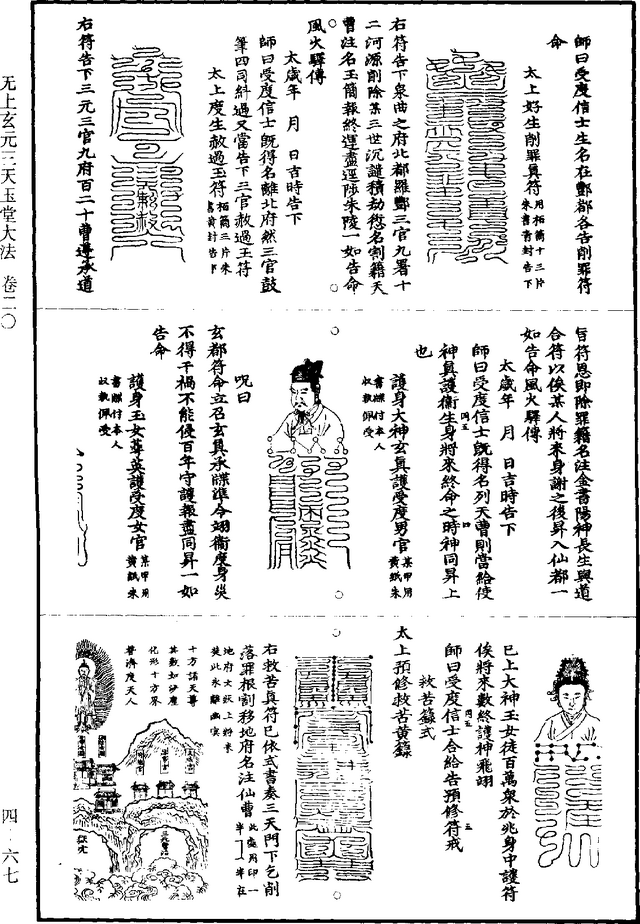 師曰受度信士生名在酆都各告削罪符
命
太上好生削罪真符用栢簡十三片
朱書青封告下
右符告下泉曲之府北都羅酆三官九署十
二河源削除某三世沉譴積劫愆名割籍天
曹注名玉簡報終運盡逕陟朱陵一如告命
風火驛傳
太歲年　月　日吉時告下
師曰受度信士旣得名離北府然三官鼓
筆四司糾過又當告下三官赦過玉符
太上度生赦過玉符栢簡三片朱
書黃封告下
右符告下三元三官九府百二十曹遵承道
旨符恩卽除罪籍名注金書陽神長生與道
合符以俟某人將來身謝之後昇入仙都一
如告命風火驛傳
太歲年　月　日吉時告下
師曰受度信士旣得名列天曹則當給使
神真護衞生身將來終命之時神同昇上
也
護身大神玄真護受度男官某甲用
黃紙朱
書牒付本人
収執佩受
呪曰
玄都符命立召玄真承牒準令翊衞度身災
不得干禍不能侵百年守護報盡同昇一如
告命
護身玉女萃英護受度女官某甲用
黃紙朱
書牒付本人
収執佩受
已上大神玉女徒百萬衆於兆身中護符
俟將來數終護神飛翊
師曰受度信士合給告預修符戒
救苦籙式
太上預修救苦黃籙
右救苦真符已依式書奏三天門下乞削
落罪根割移地府名注仙曹此處用印一
半
地府
十方諸天尊
其數如沙塵
化形十方界
普濟度天人
无上玄元三天玉堂大法　卷二〇
四―六七